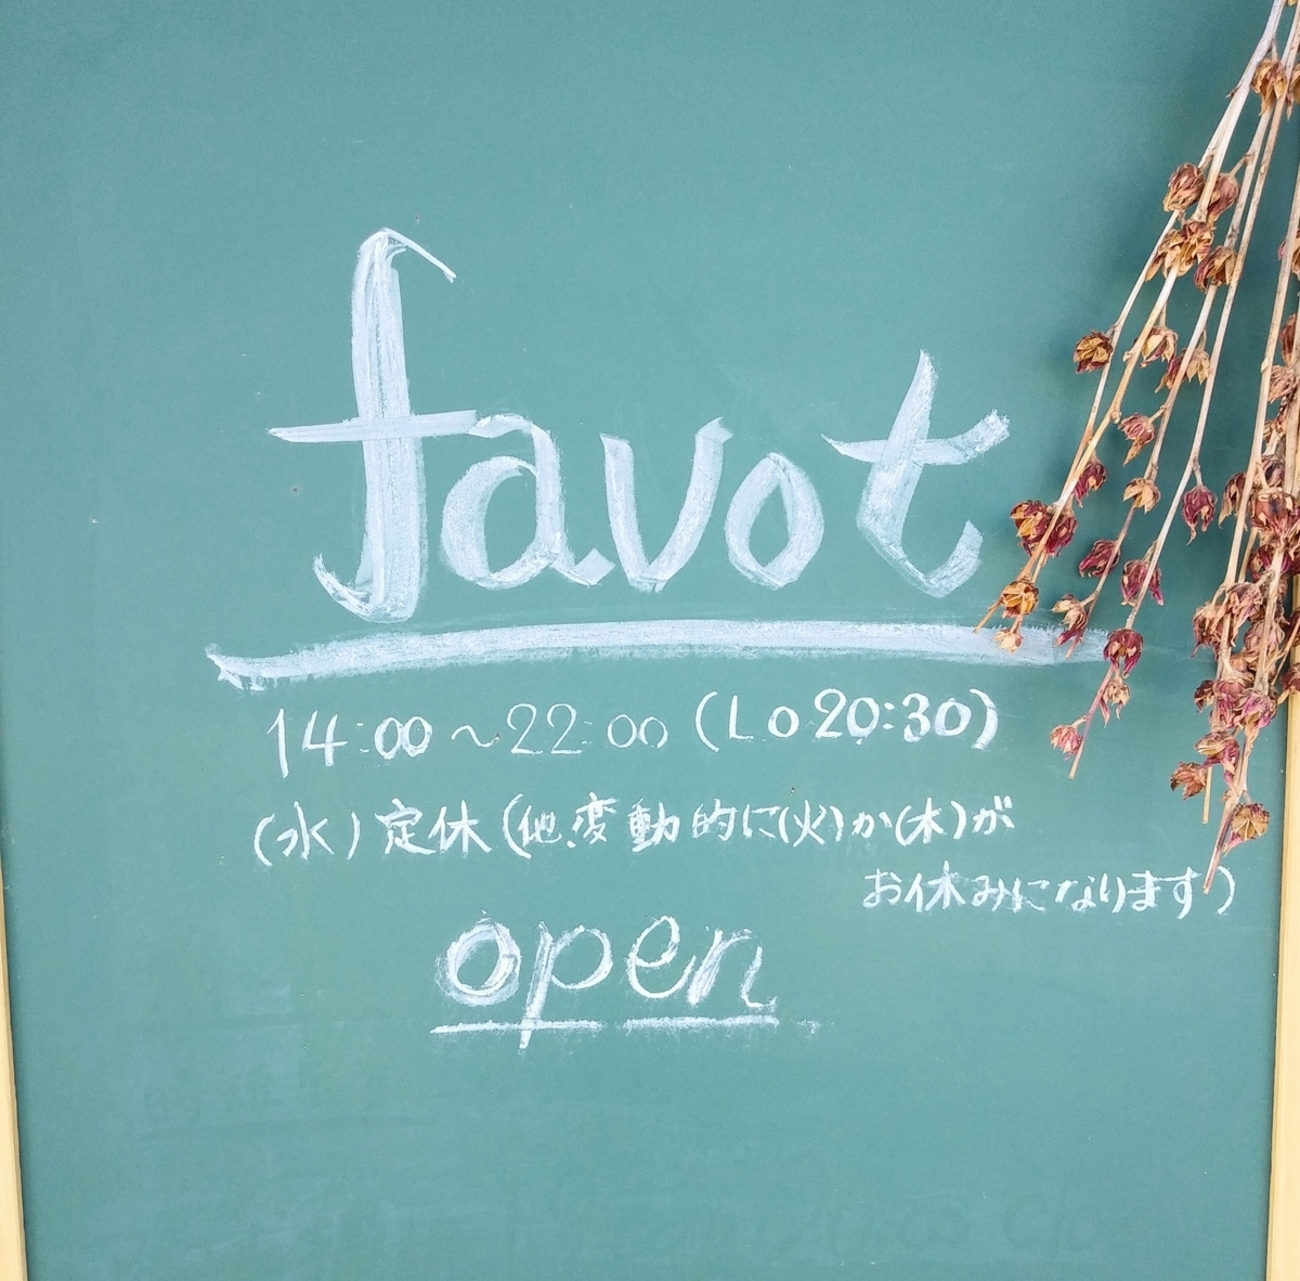 favot
14:00～22:00 (Lo 20:30)
(水)定休(他、変動的に(火)か(木)が
お休みになります)
open